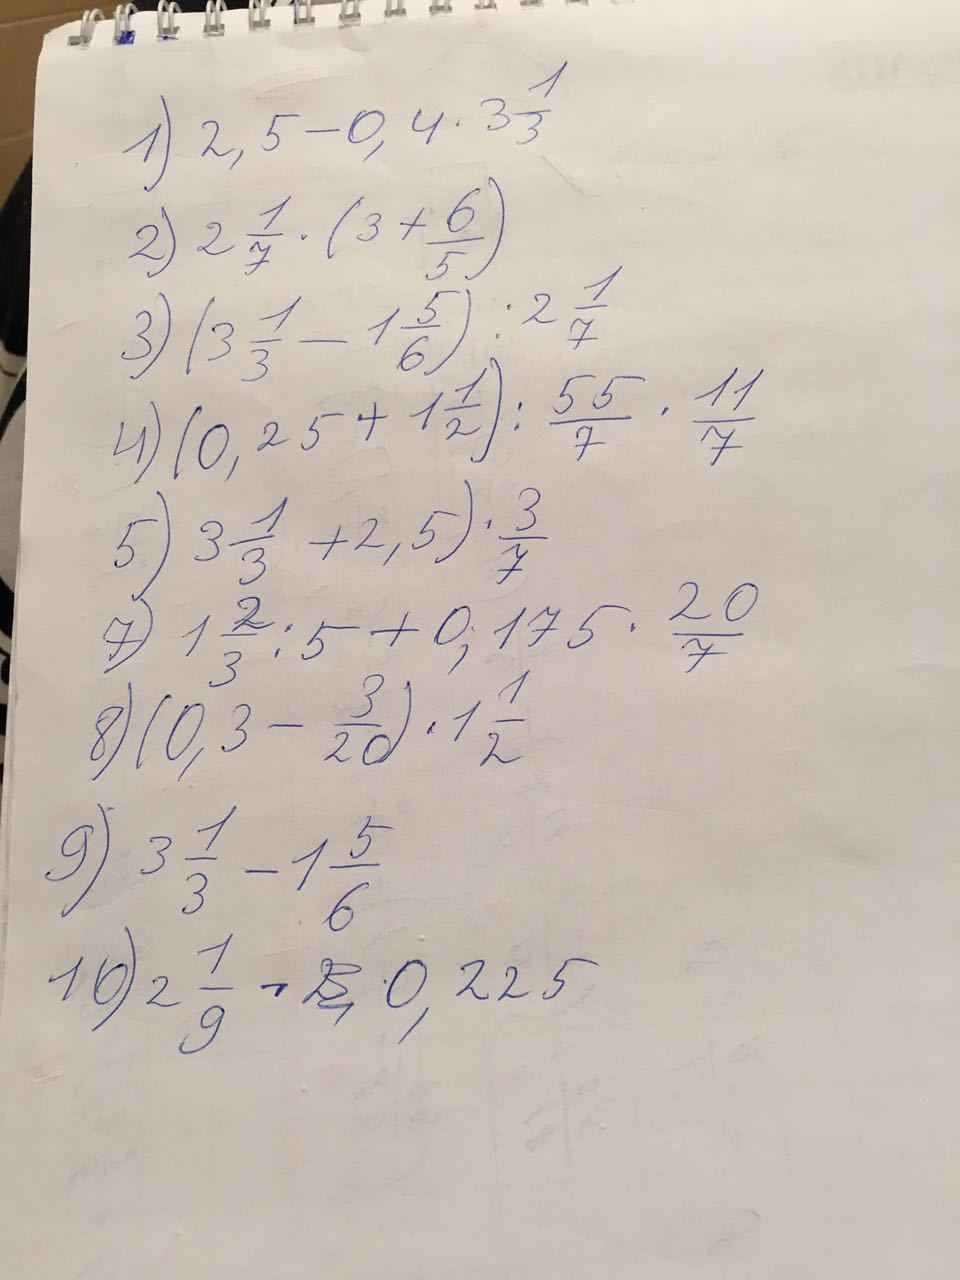 1) 2,5 - 0,4 · 3 1/3
2) 2 1/7 · (3 + 6/5)
3) (3 1/3 - 1 5/6) : 2 1/7
4) (0,25 + 1 1/2) : 55/7 · 11/7
5) 3 1/3 + 2,5) · 3/7
7) 1 2/3 : 5 + 0,175 · 20/7
8) (0,3 - 3/20) · 1 1/2
9) 3 1/3 - 1 5/6
10) 2 1/9 - 0,225